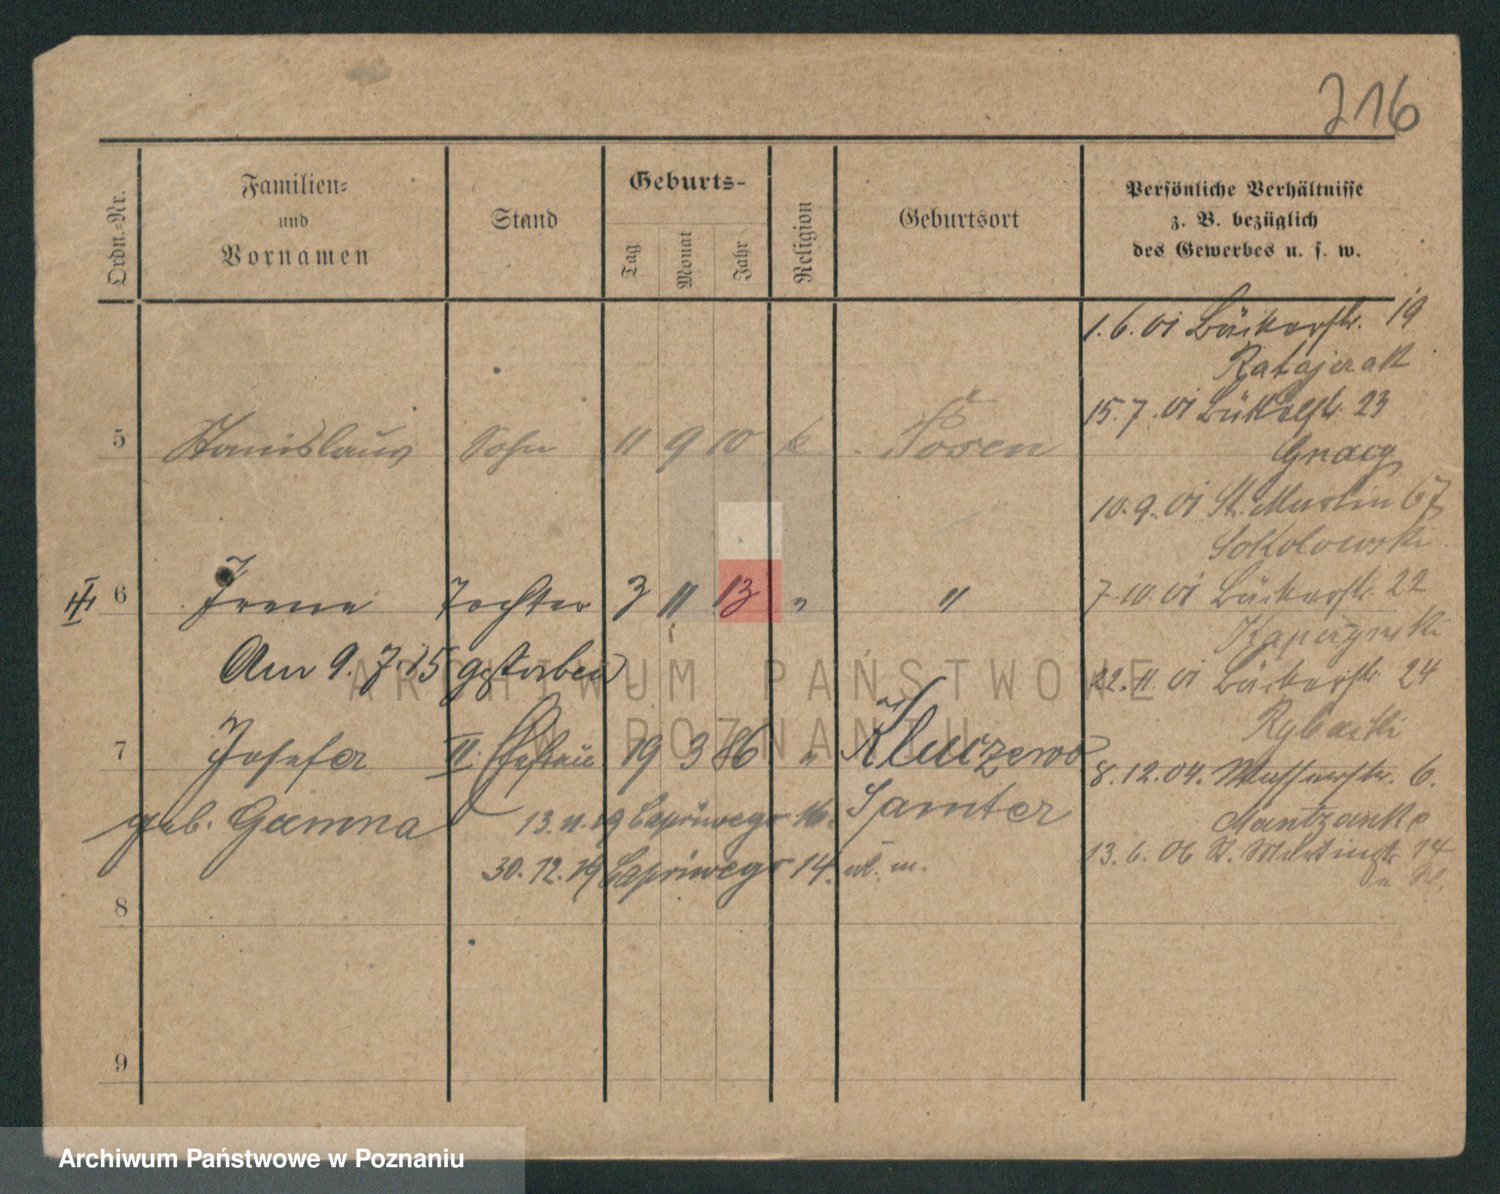 216
Ordn.-Nr.
Familien-
und
Vornamen
Stand
Geburts-
Tag
Monat
Jahr
Religion
Geburtsort
Persönliche Verhältnisse
z. B. bezüglich
des Gewerbes u. s. w.
1.6.01 Bäckerstr. 19
Ratajczak
15.7.01 Büttelstr. 23
Gnacy
5 Stanislaus Sohn 11 9 10 k. Posen
10.9.01 St. Martin 67
Sokolowski
6 Irene Tochter 3 11 13 " "
7.10.01 Bäckerstr. 22
Am 9.7.15 gestorben
22.11.01 Bäckerstr. 24
Rybacki
7 Josefa II. Ehefrau 19 3 86 " Kluczewo
8.12.04. Wasserstr. 6.
geb. Gamna 13.11.19 Capriweg 16. Samter
13.6.06 St. Martinstr. 74
30.12.19 Capriweg 14.
8
9
ARCHIWUM PAŃSTWOWE
W POZNANIU
Archiwum Państwowe w Poznaniu